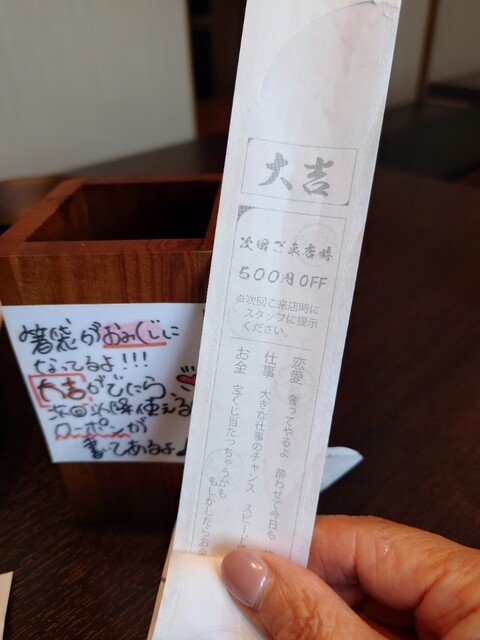 大吉
次回ご来店時
500円OFF
※次回ご来店時に
スタッフに提示
ください。
恋愛 奢ってやるよ 酔わせて今日も
仕事 大きな仕事のチャンス スピード
お金 宝くじ当たっちゃうかも
もしかしたらお金
箸袋がおみくじに
なってるよ!!!
大吉がでたら
次回以降使える
クーポンが
書いてあるよ♪